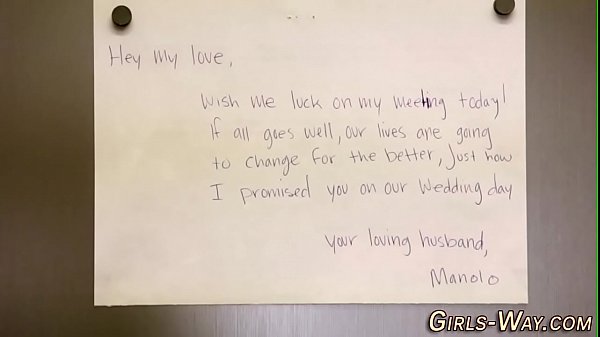 Hey my love,
Wish me luck on my meeting today!
If all goes well, our lives are going
to change for the better, Just how
I promised you on our Wedding day
your loving husband,
Manolo
GIRLS-WAY.COM